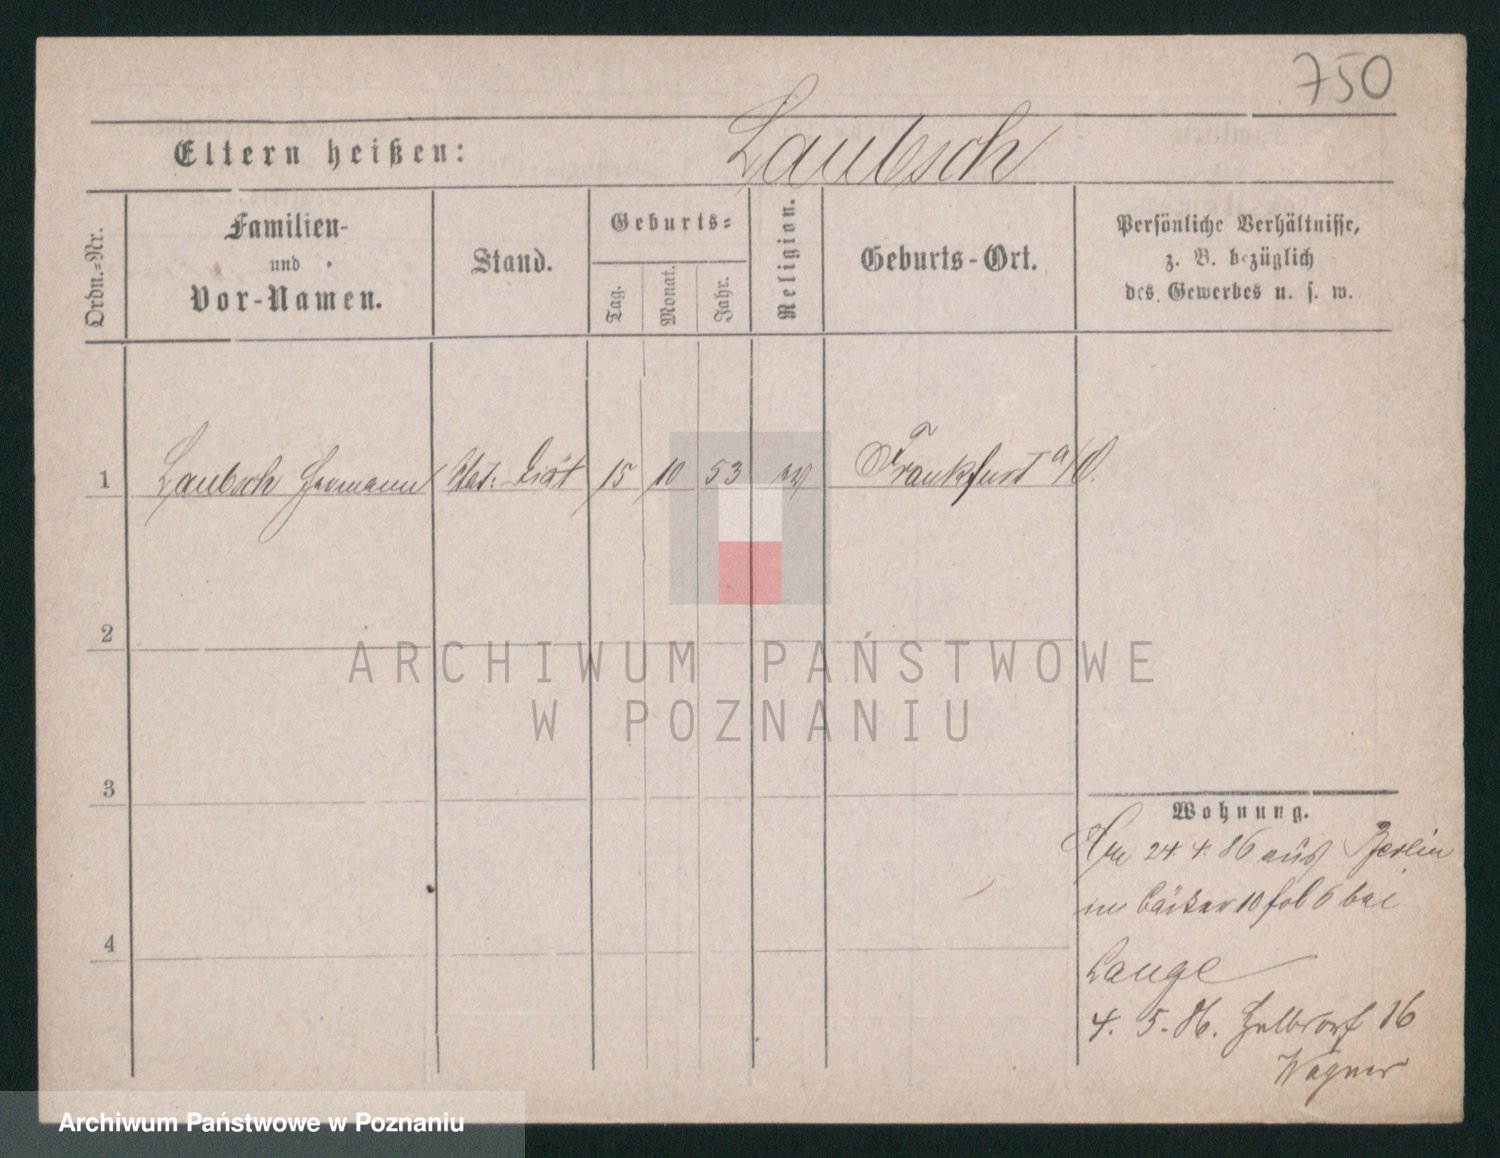 750
Eltern heißen: Laubsch
Ordn.=Nr.
Familien-
und
Vor-Namen.
Stand.
Geburts=
Tag.
Monat.
Jahr.
Religion.
Geburts-Ort.
Persönliche Verhältnisse,
z. B. bezüglich
des Gewerbes u. s. w.
1 Laubsch Hermann 15 10 53 ev Frankfurt a/O.
2
ARCHIWUM PAŃSTWOWE
W POZNANIU
3
Wohnung.
24. 4. 86 aus Berlin
4
Lange
4. 5. 86. Halbdorf 16
Wagner
Archiwum Państwowe w Poznaniu